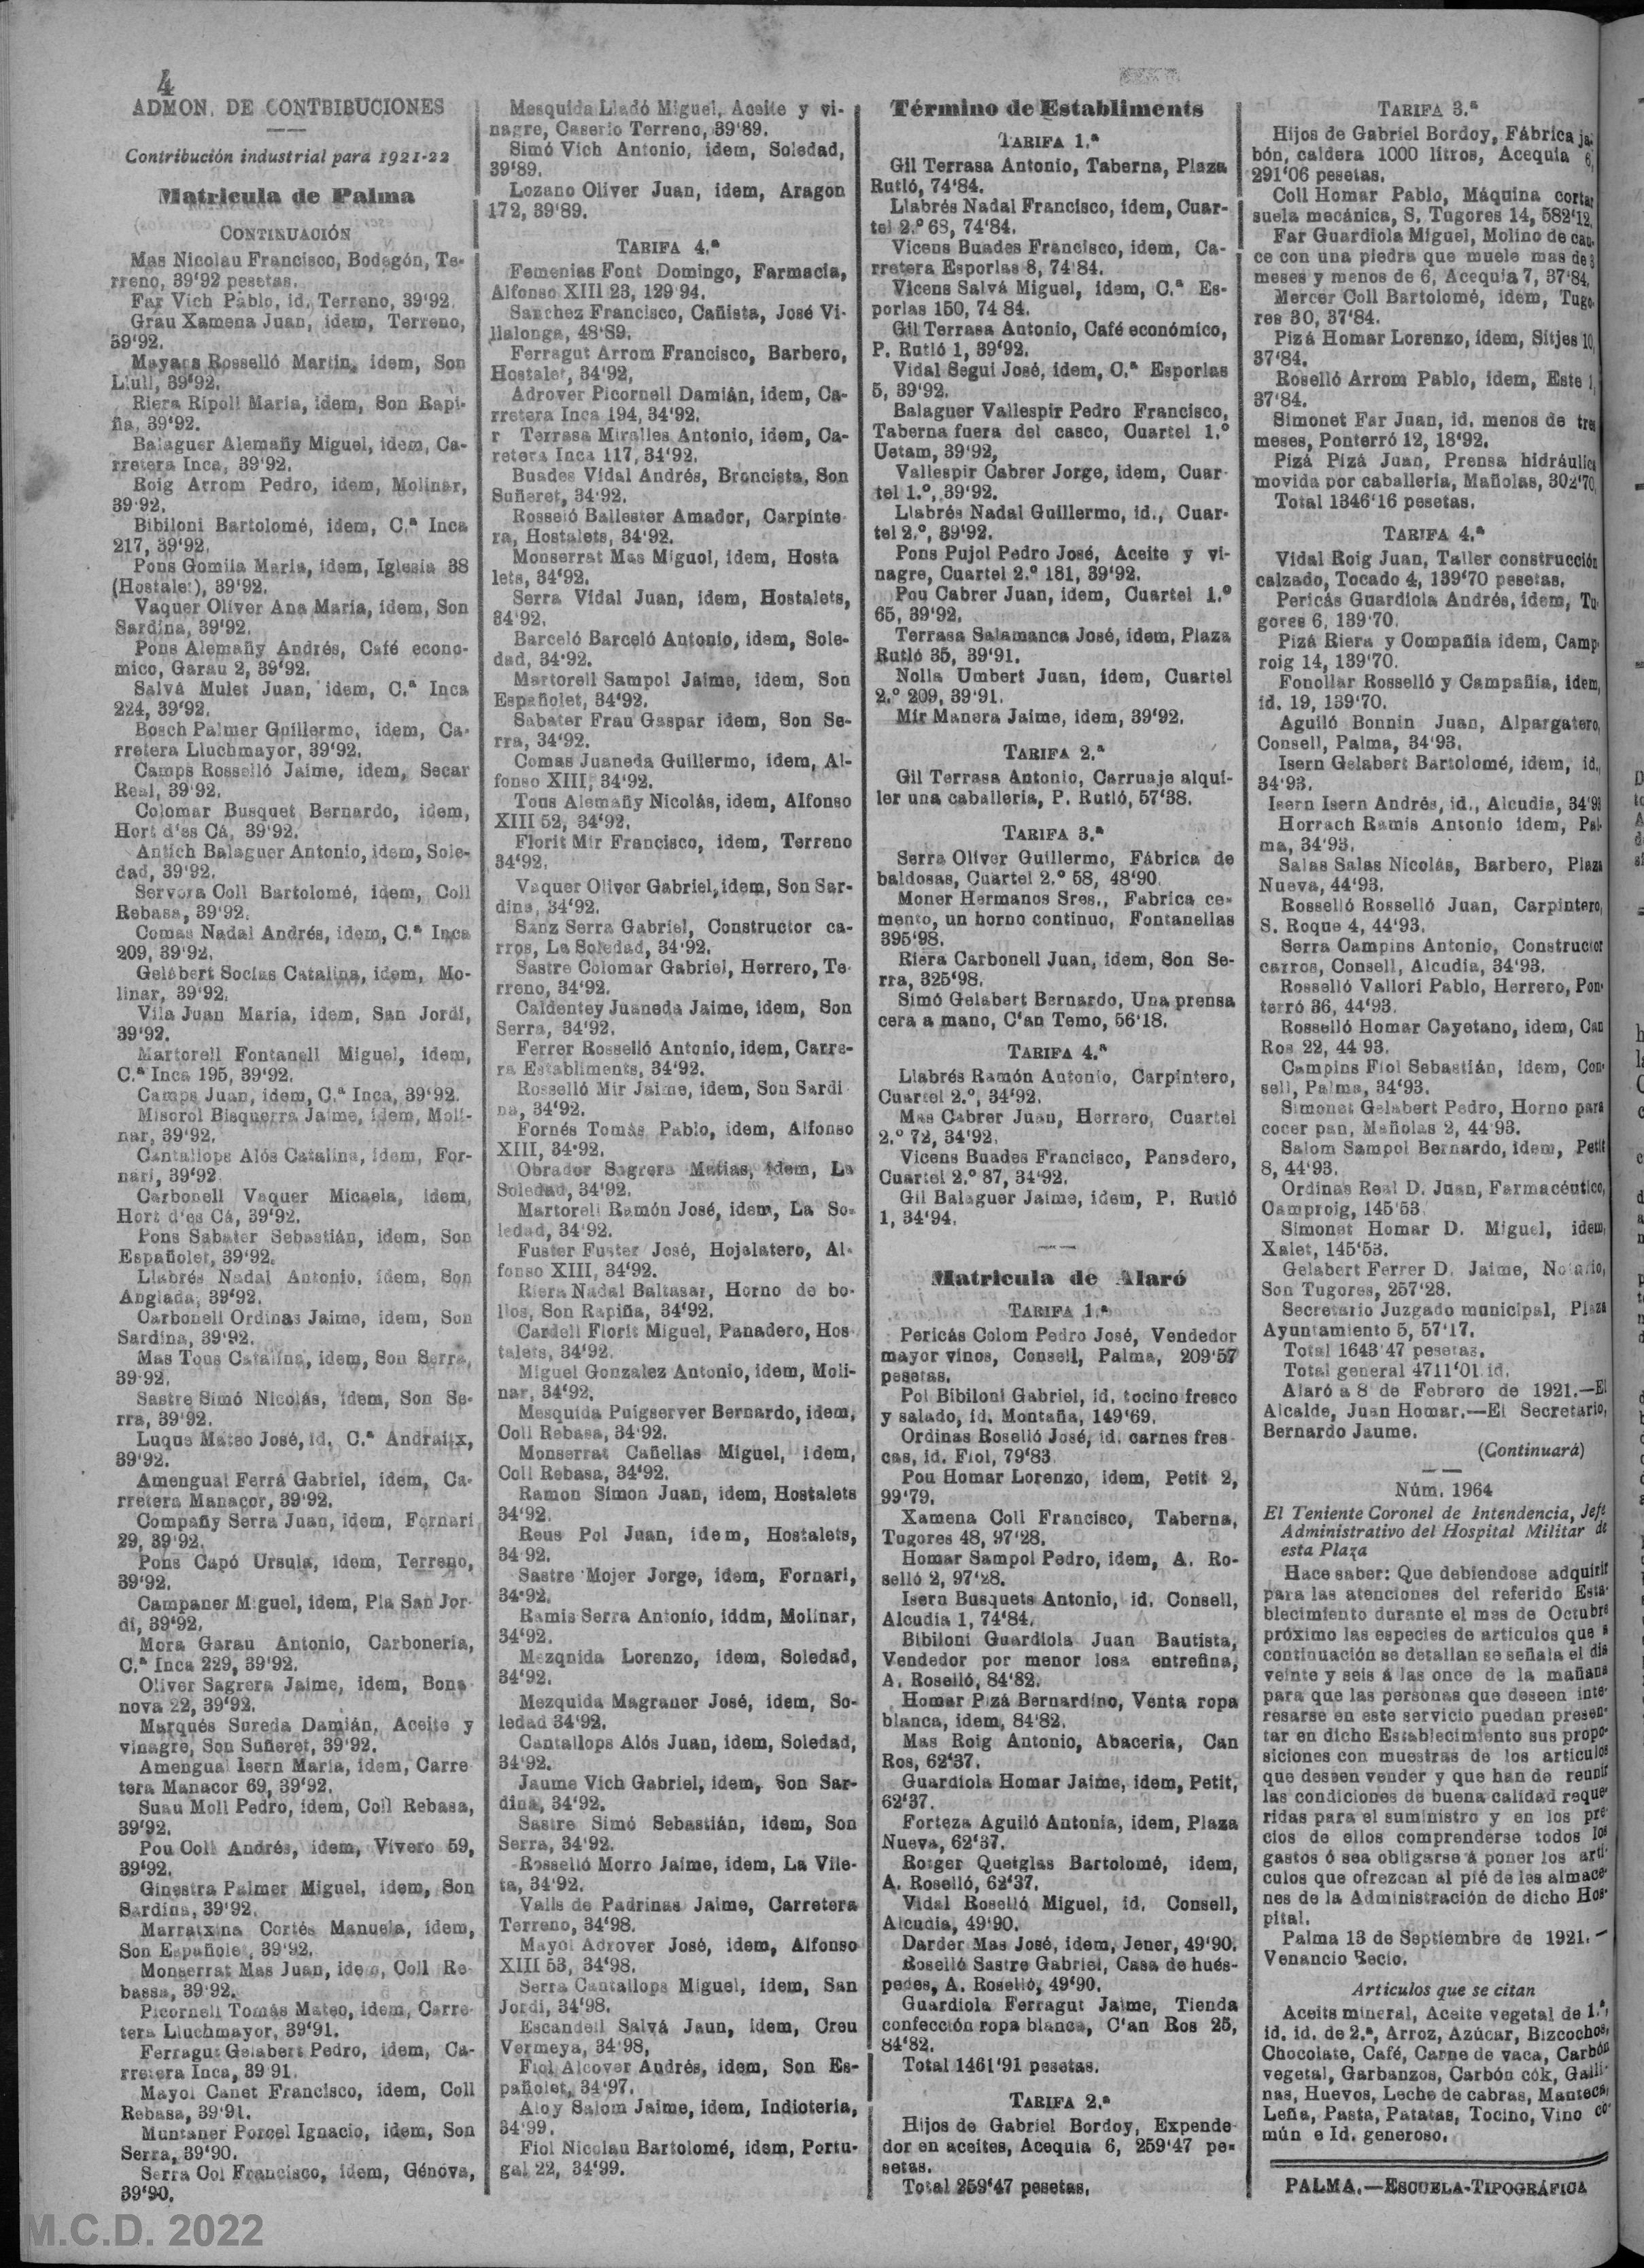 4
ADMON. DE CONTRIBUCIONES
Contribución industrial para 1921-22
Matricula de Palma
CONTINUACIÓN
Mas Nicolau Francisco, Bodegón, Te-
rreno, 39'92 pesetas.
Far Vich Pablo, id. Terreno, 39'92.
Grau Xamena Juan, idem, Terreno,
39'92.
Mayans Rosselló Martin, idem, Son
Llull, 39'92.
Riera Ripoll Maria, idem, Son Rapi-
ña, 39'92.
Balaguer Alemañy Miguel, idem, Ca-
rretera Inca, 39'92.
Roig Arrom Pedro, idem, Molinar,
39'92.
Bibiloni Bartolomé, idem, C.ª Inca
217, 39'92.
Pons Gomila Maria, idem, Iglesia 38
(Hostalet), 39'92.
Vaquer Oliver Ana Maria, idem, Son
Sardina, 39'92.
Pons Alemañy Andrés, Café econo-
mico, Garau 2, 39'92.
Salvá Mulet Juan, idem, C.ª Inca
224, 39'92.
Bosch Palmer Guillermo, idem, Ca-
rretera Lluchmayor, 39'92.
Camps Rosselló Jaime, idem, Secar
Real, 39'92.
Colomar Busquet Bernardo, idem,
Hort d'es Cá, 39'92.
Antich Balaguer Antonio, idem, Sole-
dad, 39'92.
Servera Coll Bartolomé, idem, Coll
Rebasa, 39'92.
Comas Nadal Andrés, idem, C.ª Inca
209, 39'92.
Gelabert Socias Catalina, idem, Mo-
linar, 39'92.
Vila Juan Maria, idem, San Jordi,
39'92.
Martorell Fontanell Miguel, idem,
C.ª Inca 195, 39'92.
Camps Juan, idem, C.ª Inca, 39'92.
Miserol Bisquerra Jaime, idem, Moli-
nar, 39'92.
Cantallops Alós Catalina, idem, For-
nari, 39'92
Carbonell Vaquer Micaela, idem,
Hort d'es Cá, 39'92.
Pons Sabater Sebastián, idem, Son
Españolet, 39'92.
Llabrés Nadal Antonio, idem, Son
Anglada, 39'92.
Carbonell Ordinas Jaime, idem, Son
Sardina, 39'92.
Mas Tous Catalina, idem, Son Serra,
39'92.
Sastre Simó Nicolás, idem, Son Se-
rra, 39'92.
Luque Mateo José, id. C.ª Andraitx,
39'92.
Amengual Ferrá Gabriel, idem, Ca-
rretera Manacor, 39'92.
Compañy Serra Juan, idem, Fornari
29, 39'92.
Pons Capó Ursula, idem, Terreno,
39'92.
Campaner Miguel, idem, Pla San Jor-
di, 39'92.
Mora Garau Antonio, Carboneria,
C.ª Inca 229, 39'92.
Oliver Sagrera Jaime, idem, Bona
nova 22, 39'92.
Marqués Sureda Damián, Aceite y
vinagre, Son Suñeret, 39'92.
Amengual Isern Maria, idem, Carre
tera Manacor 69, 39'92.
Suau Moll Pedro, idem, Coll Rebasa,
39'92.
Pou Coll Andrés, idem, Vivero 59,
39'92.
Ginestra Palmer Miguel, idem, Son
Sardina, 39'92.
Marratxina Cortés Manuela, idem,
Son Españolet, 39'92.
Monserrat Mas Juan, idem, Coll Re-
bassa, 39'92.
Picornell Tomás Mateo, idem, Carre
tera Lluchmayor, 39'91.
Ferragut Gelabert Pedro, idem, Ca-
rretera Inca, 39 91.
Mayol Canet Francisco, idem, Coll
Rebasa, 39'91.
Muntaner Porcel Ignacio, idem, Son
Serra, 39'90.
Serra Col Francisco, idem, Génova,
39'90.
Mesquida Lladó Miguel, Aceite y vi-
nagre, Caserio Terreno, 39'89.
Simó Vich Antonio, idem, Soledad,
39'89.
Lozano Oliver Juan, idem, Aragon
172, 39'89.
TARIFA 4.ª
Femenias Font Domingo, Farmacia,
Alfonso XIII 23, 129'94.
Sanchez Francisco, Cañista, José Vi-
llalonga, 48'89.
Ferragut Arrom Francisco, Barbero,
Hostalet, 34'92,
Adrover Picornell Damián, idem, Ca-
rretera Inca 194, 34'92.
r Terrasa Miralles Antonio, idem, Ca-
retera Inca 117, 34'92.
Buades Vidal Andrés, Broncista, Son
Suñeret, 34'92.
Rosseió Ballester Amador, Carpinte
ra, Hostalets, 34'92.
Monserrat Mas Miguol, idem, Hosta
lets, 34'92.
Serra Vidal Juan, idem, Hostalets,
34'92.
Barceló Barceló Antonio, idem, Sole-
dad, 34'92.
Martorell Sampol Jaime, idem, Son
Españolet, 34'92.
Sabater Frau Gaspar idem, Son Se-
rra, 34'92.
Comas Juaneda Guillermo, idem, Al-
fonso XIII, 34'92.
Tous Alemañy Nicolás, idem, Alfonso
XIII 52, 34'92.
Florit Mir Francisco, idem, Terreno
34'92.
Vaquer Oliver Gabriel, idem, Son Sar-
dina, 34'92.
Sanz Serra Gabriel, Constructor ca-
rros, La Soledad, 34'92.
Sastre Colomar Gabriel, Herrero, Te-
rreno, 34'92.
Caldentey Juaneda Jaime, idem, Son
Serra, 34'92.
Ferrer Rosselló Antonio, idem, Carre-
ra Establiments, 34'92.
Rosselló Mir Jaime, idem, Son Sardi
na, 34'92.
Fornés Tomás Pablo, idem, Alfonso
XIII, 34'92.
Obrador Sagrera Matias, idem, La
Soledad, 34'92.
Martorell Ramón José, idem, La So-
ledad, 34'92.
Fuster Fuster José, Hojalatero, Al-
fonso XIII, 34'92.
Riera Nadal Baltasar, Horno de bo-
llos, Son Rapiña, 34'92.
Cardell Florit Miguel, Panadero, Hos
talets, 34'92.
Miguel Gonzalez Antonio, idem, Moli-
nar, 34'92.
Mesquida Puigserver Bernardo, idem,
Coll Rebasa, 34'92.
Monserrat Cañellas Miguel, idem,
Coll Rebasa, 34'92.
Ramon Simon Juan, idem, Hostalets
34'92.
Reus Pol Juan, idem, Hostalets,
34 92.
Sastre Mojer Jorge, idem, Fornari,
34'92.
Ramis Serra Antonio, iddm, Molinar,
34'92.
Mezqnida Lorenzo, idem, Soledad,
34'92.
Mezquida Magraner José, idem, So-
ledad 34'92.
Cantallops Alós Juan, idem, Soledad,
34'92.
Jaume Vich Gabriel, idem, Son Sar-
dina, 34'92.
Sastre Simó Sebastián, idem, Son
Serra, 34'92.
Rosselló Morro Jaime, idem, La Vile-
ta, 34'92.
Valls de Padrinas Jaime, Carretera
Terreno, 34'98.
Mayol Adrover José, idem, Alfonso
XIII 53, 34'98.
Serra Cantallops Miguel, idem, San
Jordi, 34'98.
Escandell Salvá Jaun, idem, Creu
Vermeya, 34'98,
Fiol Alcover Andrés, idem, Son Es-
pañolet, 34'97.
Aloy Salom Jaime, idem, Indioteria,
34'99.
Fiol Nicolau Bartolomé, idem, Portu-
gal 22, 34'99.
Término de Establiments
TARIFA 1.ª
Gil Terrasa Antonio, Taberna, Plaza
Rutló, 74'84.
Llabrés Nadal Francisco, idem, Cuar-
tel 2.º 68, 74'84.
Vicens Buades Francisco, idem, Ca-
rretera Esporlas 8, 74'84.
Vicens Salvá Miguel, idem, C.ª Es-
porlas 150, 74 84.
Gil Terrasa Antonio, Café económico,
P. Rutló 1, 39'92.
Vidal Segui José, idem, C.ª Esporlas
5, 39'92.
Balaguer Vallespir Pedro Francisco,
Taberna fuera del casco, Cuartel 1.º
Uetam, 39'92,
Vallespir Cabrer Jorge, idem, Cuar
tel 1.º, 39'92.
Llabrés Nadal Guillermo, id., Cuar-
tel 2.º, 39'92.
Pons Pujol Pedro José, Aceite y vi-
nagre, Cuartel 2.º 181, 39'92.
Pou Cabrer Juan, idem, Cuartel 1.º
65, 39'92.
Terrasa Salamanca José, idem, Plaza
Rutló 35, 39'91.
Nolla Umbert Juan, idem, Cuartel
2.º 209, 39'91.
Mir Manera Jaime, idem, 39'92.
TARIFA 2.ª
Gil Terrasa Antonio, Carruaje alqui-
ler una caballeria, P. Rutló, 57'38.
TARIFA 3.ª
Serra Oliver Guillermo, Fábrica de
baldosas, Cuartel 2.º 58, 48'90.
Moner Hermanos Sres., Fabrica ce-
mento, un horno continuo, Fontanellas
395'98.
Riera Carbonell Juan, idem, Son Se-
rra, 325'98.
Simó Gelabert Bernardo, Una prensa
cera a mano, C'an Temo, 56'18.
TARIFA 4.ª
Llabrés Ramón Antonio, Carpintero,
Cuartel 2.º, 34'92.
Mas Cabrer Juan, Herrero, Cuartel
2.º 72, 34'92.
Vicens Buades Francisco, Panadero,
Cuartel 2.º 87, 34'92.
Gil Balaguer Jaime, idem, P. Rutló
1, 34'94.
Matricula de Alaró
TARIFA 1.ª
Pericás Colom Pedro José, Vendedor
mayor vinos, Consell, Palma, 209'57
pesetas.
Pol Bibiloni Gabriel, id. tocino fresco
y salado, id. Montaña, 149'69.
Ordinas Roselló José, id. carnes fres-
cas, id. Fiol, 79'83.
Pou Homar Lorenzo, idem, Petit 2,
99'79.
Xamena Coll Francisco, Taberna,
Tugores 48, 97'28.
Homar Sampol Pedro, idem, A. Ro-
selló 2, 97'28.
Isern Busquets Antonio, id. Consell,
Alcudia 1, 74'84.
Bibiloni Guardiola Juan Bautista,
Vendedor por menor losa entrefina,
A. Roselló, 84'82.
Homar Pizá Bernardino, Venta ropa
blanca, idem, 84'82.
Mas Roig Antonio, Abaceria, Can
Ros, 62'37.
Guardiola Homar Jaime, idem, Petit,
62'37.
Forteza Aguiló Antonia, idem, Plaza
Nueva, 62'37.
Rotger Quetglas Bartolomé, idem,
A. Roselló, 62'37.
Vidal Roselló Miguel, id. Consell,
Alcudia, 49'90.
Darder Mas José, idem, Jener, 49'90.
Roselló Sastre Gabriel, Casa de hués-
pedes, A. Roselló, 49'90.
Guardiola Ferragut Jaime, Tienda
confección ropa blanca, C'an Ros 25,
84'82.
Total 1461'91 pesetas.
TARIFA 2.ª
Hijos de Gabriel Bordoy, Expende
dor en aceites, Acequia 6, 259'47 pe-
setas.
Total 259'47 pesetas.
TARIFA 3.ª
Hijos de Gabriel Bordoy, Fábrica ja-
bón, caldera 1000 litros, Acequia 6,
291'06 pesetas.
Coll Homar Pablo, Máquina cortar
suela mecánica, S. Tugores 14, 582'12.
Far Guardiola Miguel, Molino de cau-
ce con una piedra que muele mas de 3
meses y menos de 6, Acequia 7, 37'84.
Mercer Coll Bartolomé, idem, Tugo-
res 30, 37'84.
Pizá Homar Lorenzo, idem, Sitjes 10,
37'84.
Roselló Arrom Pablo, idem, Este 1,
37'84.
Simonet Far Juan, id. menos de tres
meses, Ponterró 12, 18'92.
Pizá Pizá Juan, Prensa hidráulica
movida por caballeria, Mañolas, 302'70.
Total 1346'16 pesetas.
TARIFA 4.ª
Vidal Roig Juan, Taller construcción
calzado, Tocado 4, 139'70 pesetas.
Pericás Guardiola Andrés, idem, Tu-
gores 6, 139'70.
Pizá Riera y Compañia idem, Camp-
roig 14, 139'70.
Fonollar Rosselló y Campañia, idem,
id. 19, 139'70.
Aguiló Bonnin Juan, Alpargatero,
Consell, Palma, 34'93.
Isern Gelabert Bartolomé, idem, id.,
34'93.
Isern Isern Andrés, id., Alcudia, 34'93
Horrach Ramis Antonio idem, Pal-
ma, 34'93.
Salas Salas Nicolás, Barbero, Plaza
Nueva, 44'93.
Rosselló Rosselló Juan, Carpintero,
S. Roque 4, 44'93.
Serra Campins Antonio, Constructor
carros, Consell, Alcudia, 34'93.
Rosselló Vallori Pablo, Herrero, Pon-
terró 36, 44'93.
Rosselló Homar Cayetano, idem, Can
Ros 22, 44 93.
Campins Fiol Sebastián, idem, Con-
sell, Palma, 34'93.
Simonet Gelabert Pedro, Horno para
cocer pan, Mañolas 2, 44'93.
Salom Sampol Bernardo, idem, Petit
8, 44'93.
Ordinas Real D. Juan, Farmacéutico,
Camproig, 145'53
Simonet Homar D. Miguel, idem,
Xalet, 145'53.
Gelabert Ferrer D. Jaime, Notario,
Son Tugores, 257'28.
Secretario Juzgado municipal, Plaza
Ayuntamiento 5, 57'17.
Total 1643'47 pesetas.
Total general 4711'01 id.
Alaró a 8 de Febrero de 1921.—El
Alcalde, Juan Homar.—El Secretario,
Bernardo Jaume.
(Continuará)
Núm. 1964
El Teniente Coronel de Intendencia, Jefe
Administrativo del Hospital Militar de
esta Plaza
Hace saber: Que debiendose adquirir
para las atenciones del referido Esta-
blecimiento durante el mes de Octubre
próximo las especies de articulos que a
continuación se detallan se señala el dia
veinte y seis á las once de la mañana
para que las personas que deseen inte-
resarse en este servicio puedan presen-
tar en dicho Establecimiento sus propo-
siciones con muestras de los articulos
que dessen vender y que han de reunir
las condiciones de buena calidad reque-
ridas para el suministro y en los pre-
cios de ellos comprenderse todos los
gastos ó sea obligarse á poner los arti-
culos que ofrezcan al pié de les almace-
nes de la Administración de dicho Hos-
pital.
Palma 13 de Septiembre de 1921.—
Venancio Recio.
Articulos que se citan
Aceits mineral, Aceite vegetal de 1.ª,
id. id. de 2.ª, Arroz, Azúcar, Bizcochos,
Chocolate, Café, Carne de vaca, Carbón
vegetal, Garbanzos, Carbón cók, Galli-
nas, Huevos, Leche de cabras, Manteca,
Leña, Pasta, Patatas, Tocino, Vino co-
mún e Id. generoso.
PALMA.—ESCUELA-TIPOGRÁFICA
M.C.D. 2022